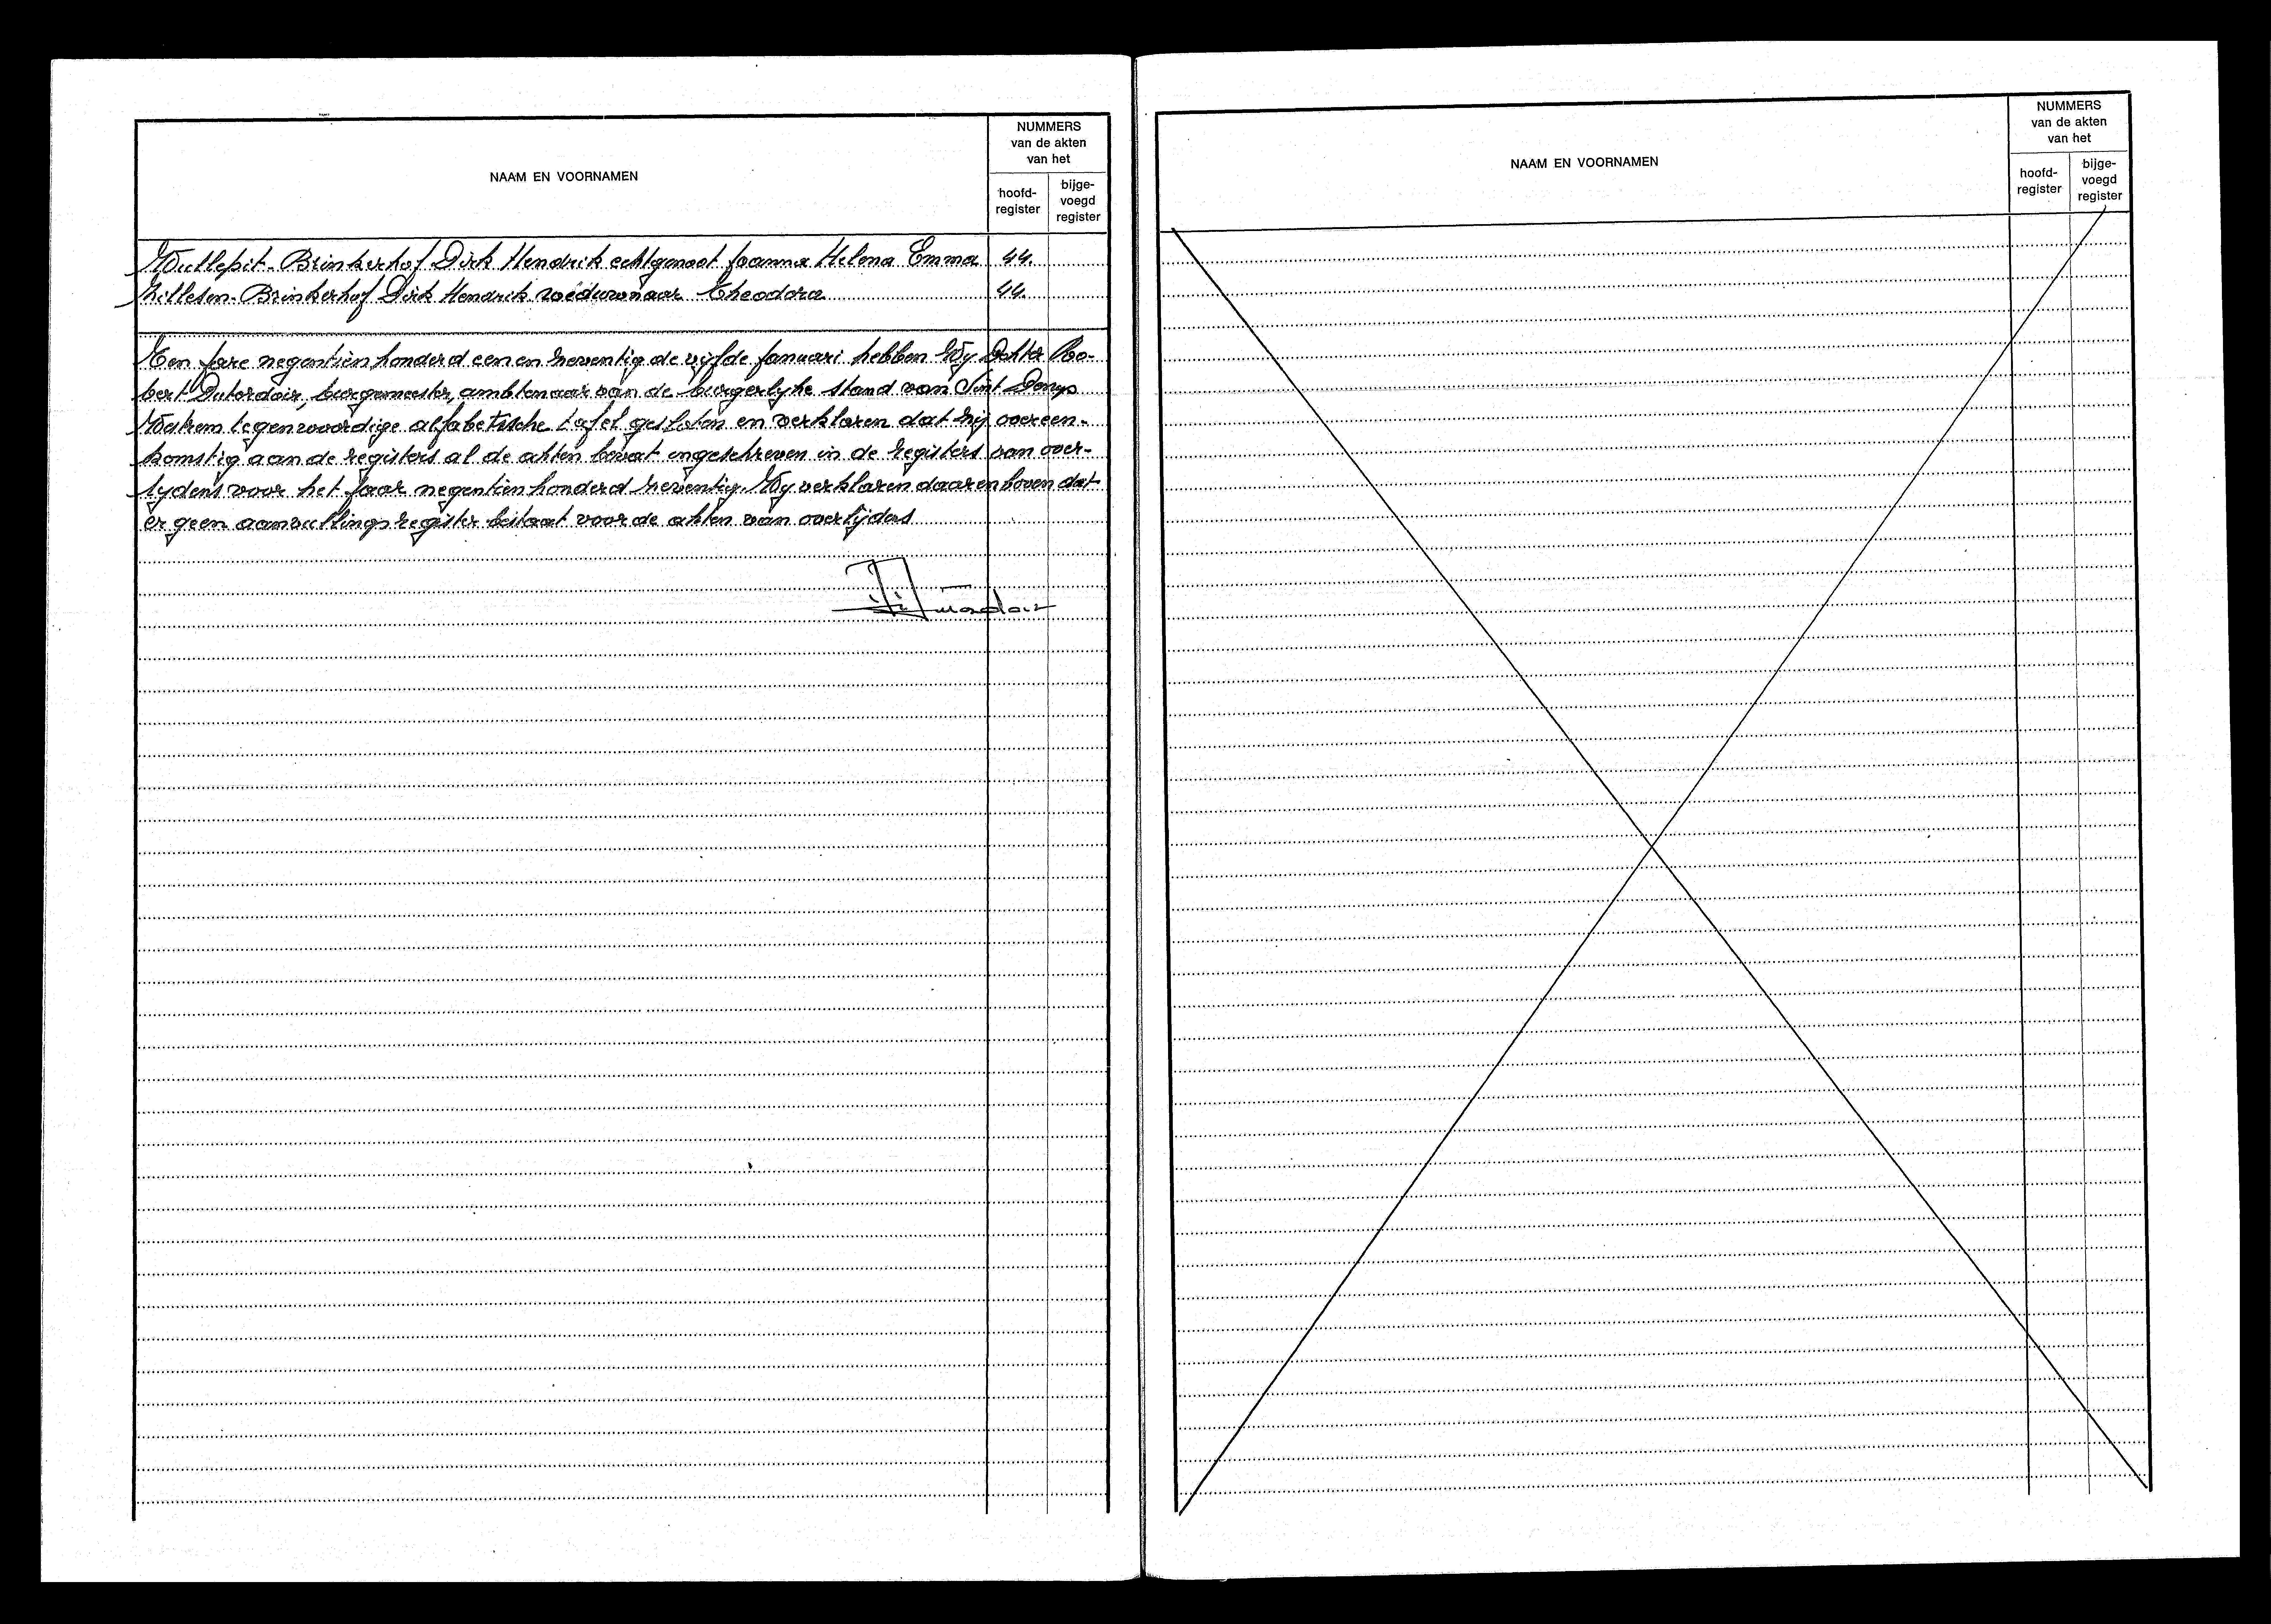 NAAM EN VOORNAMEN
NUMMERS
van de akten
van het
hoofd-
register
bijge-
voegd
register
Wullepit-Brinkerhof Dirk Hendrik echtgenoot Joanna Helena Emma 44.
Zillesen-Brinkerhof Dirk Hendrik weduwnaar Theodora 44.
Ten jare negentien honderd een en zeventig de vijfde Januari, hebben Wy Dokter Ro-
bert Dutordoir, burgemeester, ambtenaar van de burgerlyke stand van Sint Denys
Westrem tegenwoordige alfabetische tafel gesloten en verklaren dat zij overeen-
komstig aan de registers al de akten bevat ingeschreven in de registers van over-
lydens voor het jaar negentien honderd zeventig. Wy verklaren daarenboven dat
er geen aanvullingsregister bestaat voor de akten van overlijdens
NAAM EN VOORNAMEN
NUMMERS
van de akten
van het
hoofd-
register
bijge-
voegd
register